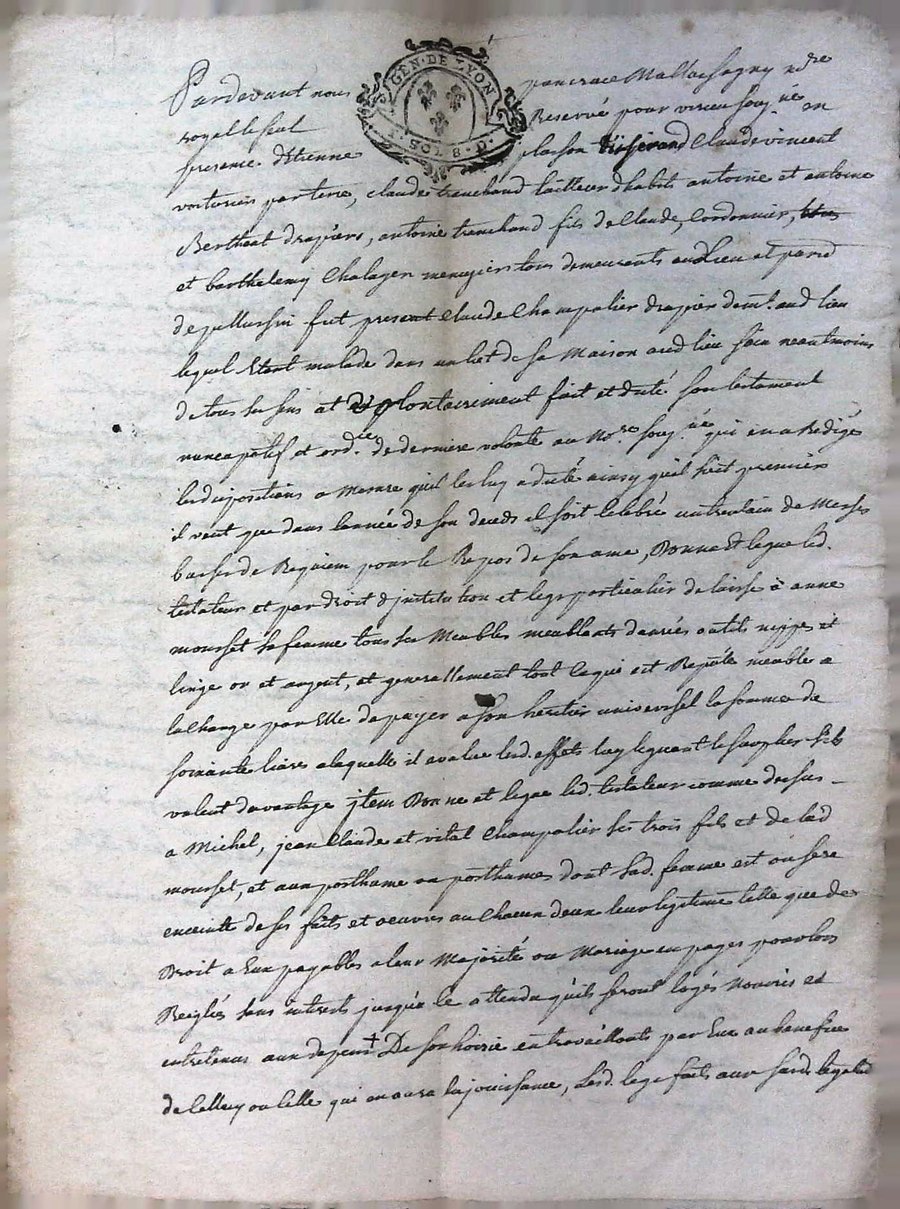 GEN·DE LYON
8 SOLS
Pardevant nous pancrace Mallassagny nore
royal le seul Reservé pour vireu souy.né en
presence dEtienne plasson Tisserand Claude vincent
voiturier par terre, claude tranchand tailleur dhabits antoine et antoine
Bertheat drapiers, antoine tranchand fils de Claude, Cordonnier,
et barthelemy Chalayer menuziers tous demeurants aud Lieu et parr
de pellussin fut present Claude Champalier drapier demt. aud lieu
lequel Etant malade dans un liet de sa Maison aud lieu sain neantmoins
de tous ses sens at volontairement fait et dicté son testament
nuncupatif et ord.re de derniere volonté au No.re souy.né qui en a Redigé
les dispositions a Mesure quil les luy a dicté ainsy quil suit premier
il veut que dans lannée de son deceds il soit Celebré un trentain de Messes
basses de Requiem pour le Repos de son ame, Donne et legue led.
testateur et par droit d jnstitution et legs particulier delaisse à anne
mourset sa femme tous ses Meubles meublants danrées outils nippes et
linge or et argent, et generallement tout Ce qui est Reputé meuble a
la Charge par Elle de payer a son heritier universel la somme de
soixante livres a laquelle il avalue lesd. effets luy leguant le surplus sils
valent davantage jtem Donne et legue led. testateur comme dessus
a Michel, jean Claude et vital Champalier ses trois fils et de lad
mourset, et aux posthume ou posthumes dont sad. femme est ou sera
enceinte de ses faits et oeuvres au Chacun deux leur legitime telle que de
Droit a Eux payables a leur Majorité ou Mariage en payes pour lors
Reiglés sans interets jusqu'a ce attendu qu'ils seront logés nourris et
entretenus aux depens + De son hoirie en travaillants par Eux au benefice
de Celluy ou Celle qui en aura la jouissance, Lesd. legs faits aux susd. legataires